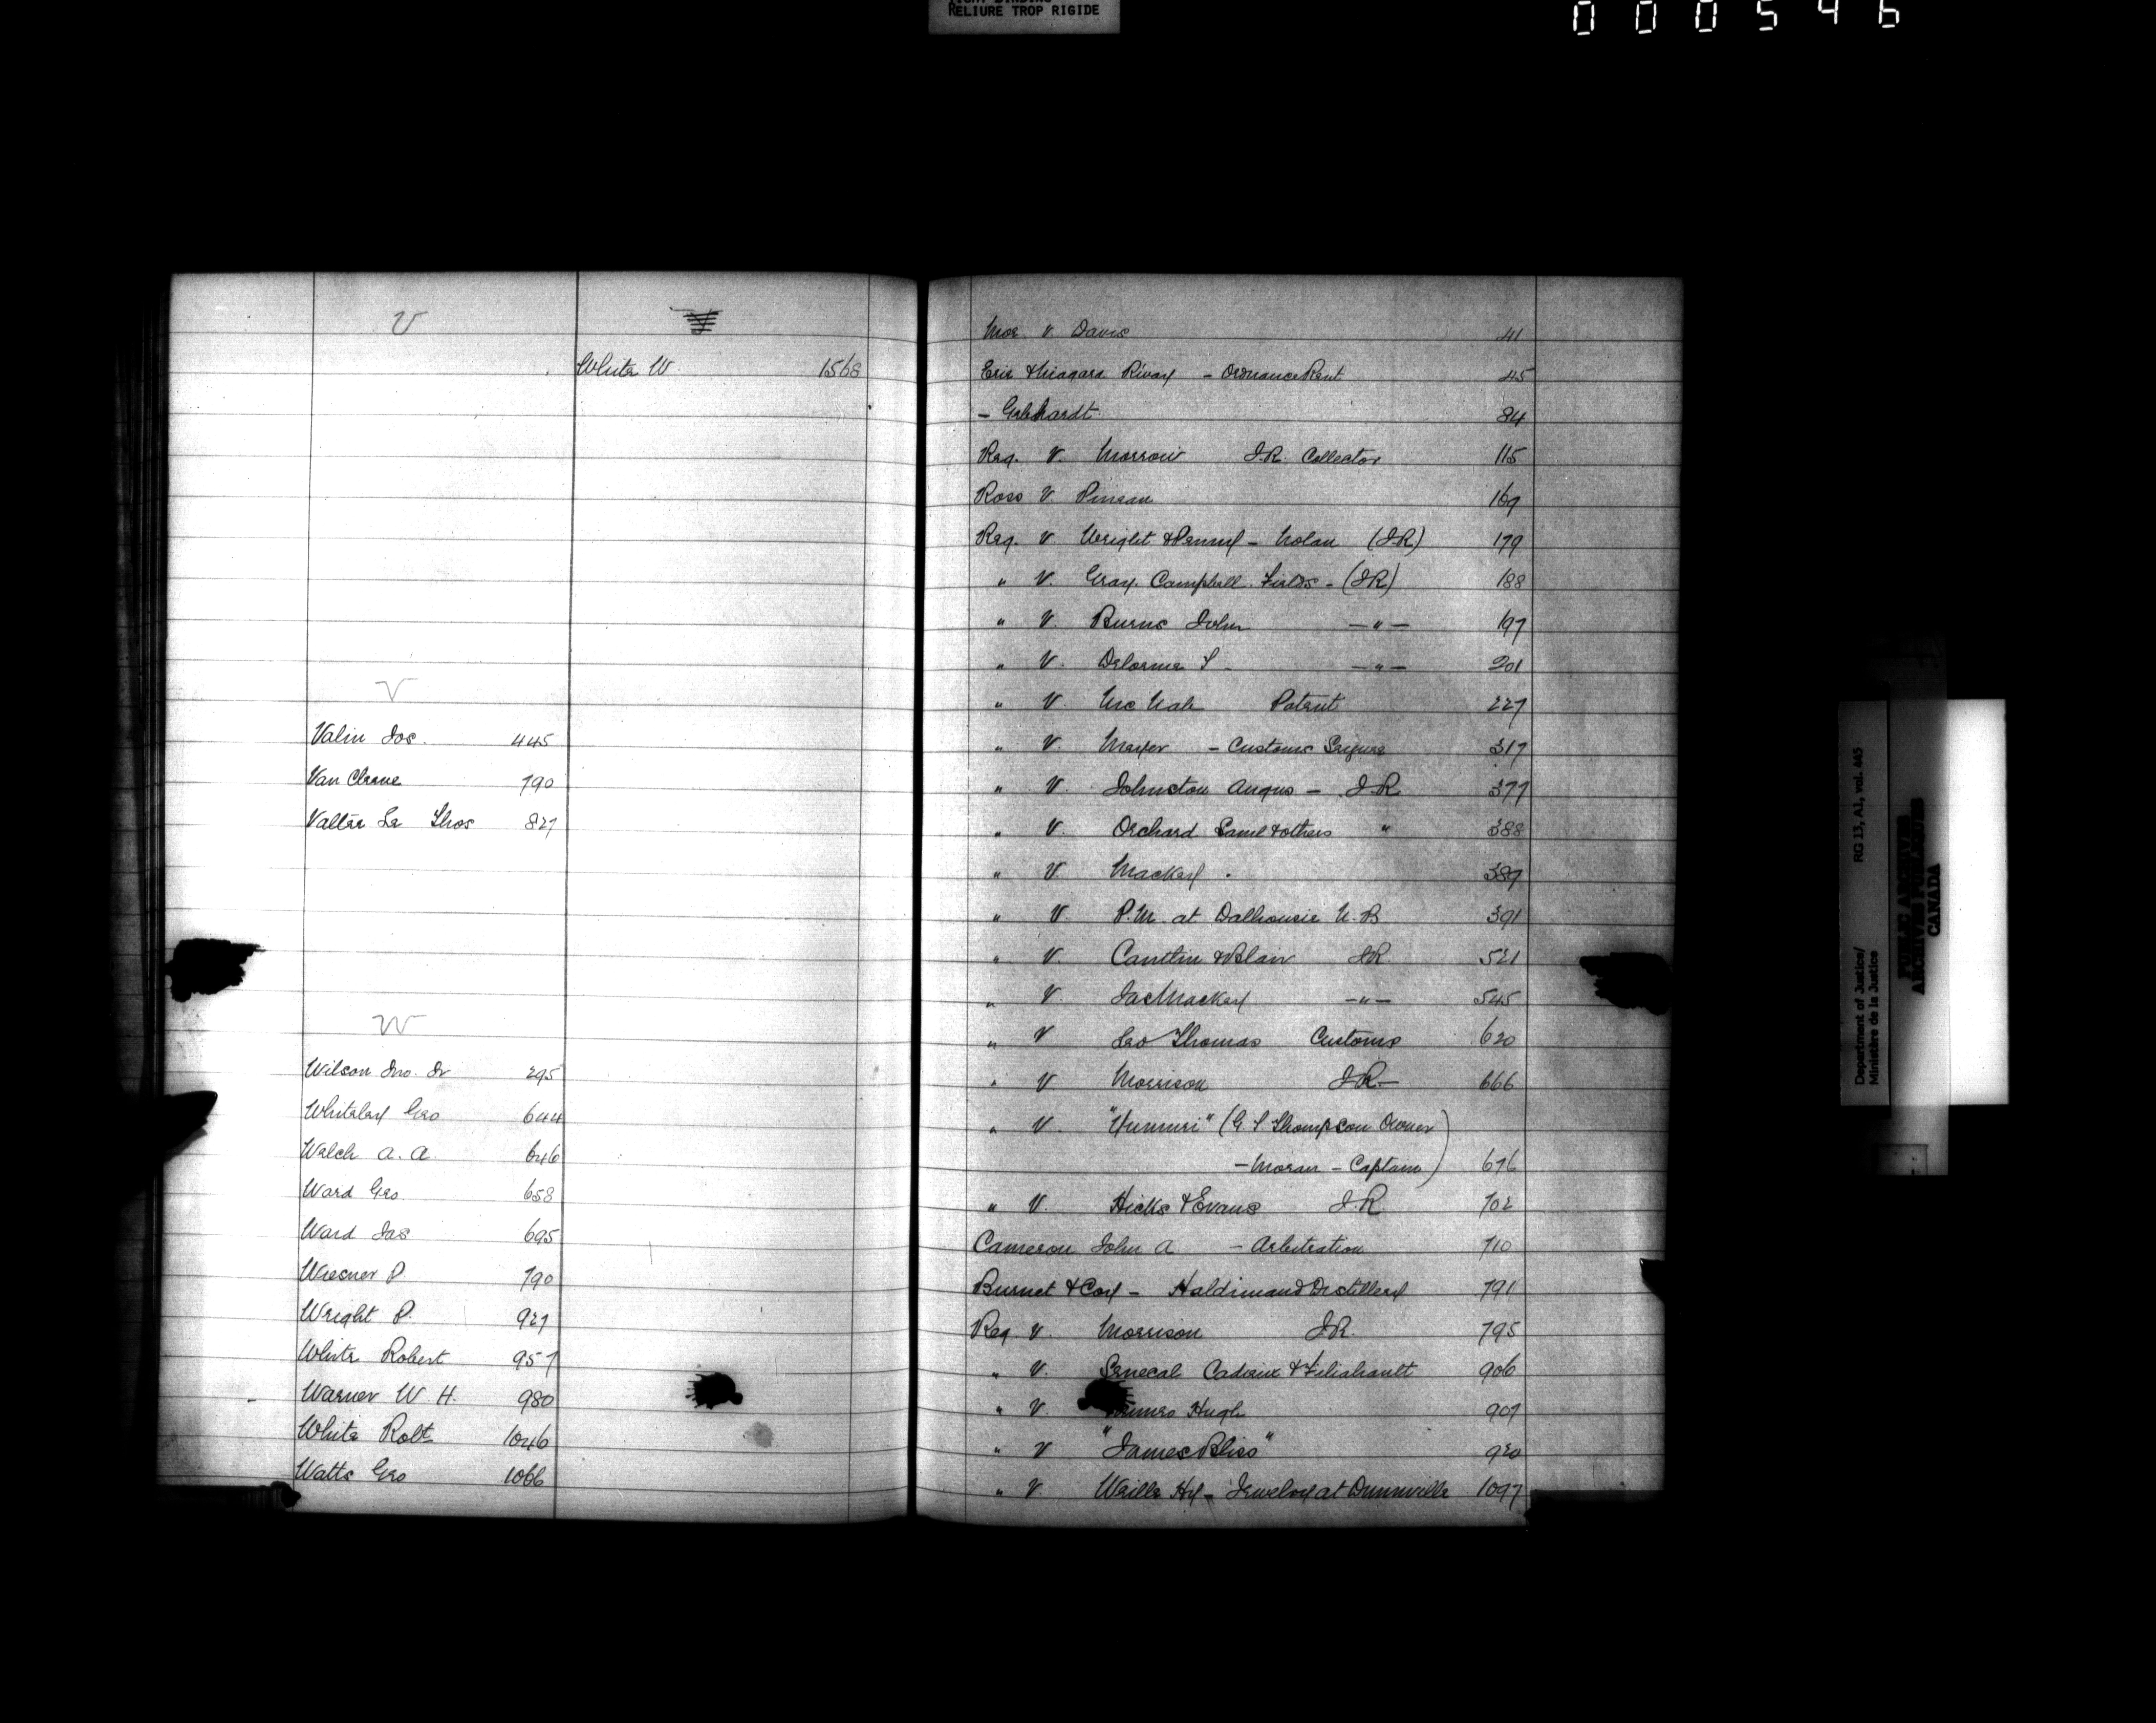 RELIURE TROP RIGIDE
000546
U
White W. 1568
V
Valin Jos. 445
Van Cleeve 790
Vallée Le Thos 827
W
Wilson Jno. Jr 295
Whiteley Geo 644
Welch A. A. 646
Ward Geo. 658
Ward Jas 695
Wiesner P. 790
Wright P. 927
White Robert 957
Warner W. H. 980
White Robt 1046
Watts Geo 1066
Moe v. Davis 41
Erie & Niagara Rlway - Ordnance Rent 45
- Gebhardt 84
Reg. V. Morrow I.R. Collector 115
Ross V. Pineau 169
Reg. V. Wright & Penny - Nolan (I.R) 179
" V. Gray. Campbell. Fields - (I.R) 188
" V. Burns John - " - 197
" V. Delorme S. - " - 201
" V. McNab Patent 227
" V. Mayer - Customs Seizure 317
" V. Johnston Angus - I.R 377
" V. Orchard Saml & others " 388
" V. Mackey 389
" V. P.M. at Dalhousie N.B 391
" V. Cantlin & Blair I.R. 521
" V. Jas Mackey - " - 545
" V Leo Thomas Customs 620
" V Morrison I.R - 666
" V. "Yumuri" (G S Thompson Owner
- Moran - Captain) 676
" V. Hicks & Evans I.R. 702
Cameron John A - Arbitration 710
Burnet & Coy - Haldimand Distillery 791
Reg V. Morrison I.R. 795
" V. Senecal Cadieux & Filiahault 906
" V. Hugh 907
" V "James Bliss" 920
" V. Weills Hy - Jewelry at Dunnville 1097
Department of Justice/
Ministère de la Justice
RG 13, A1, vol. 445
PUBLIC ARCHIVES
ARCHIVES PUBLIQUES
CANADA